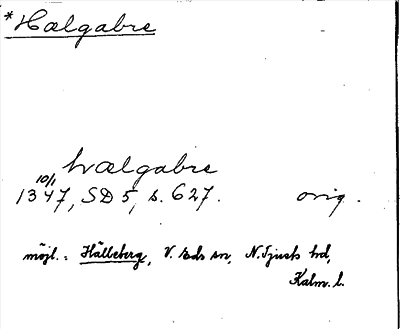 *Hælgabre
hvælgabre
10/1
1347, SD 5, s. 627. orig.
möjl. = Hälleberg, V. Eds sn, N. Tjusts hd,
Kalm. l.